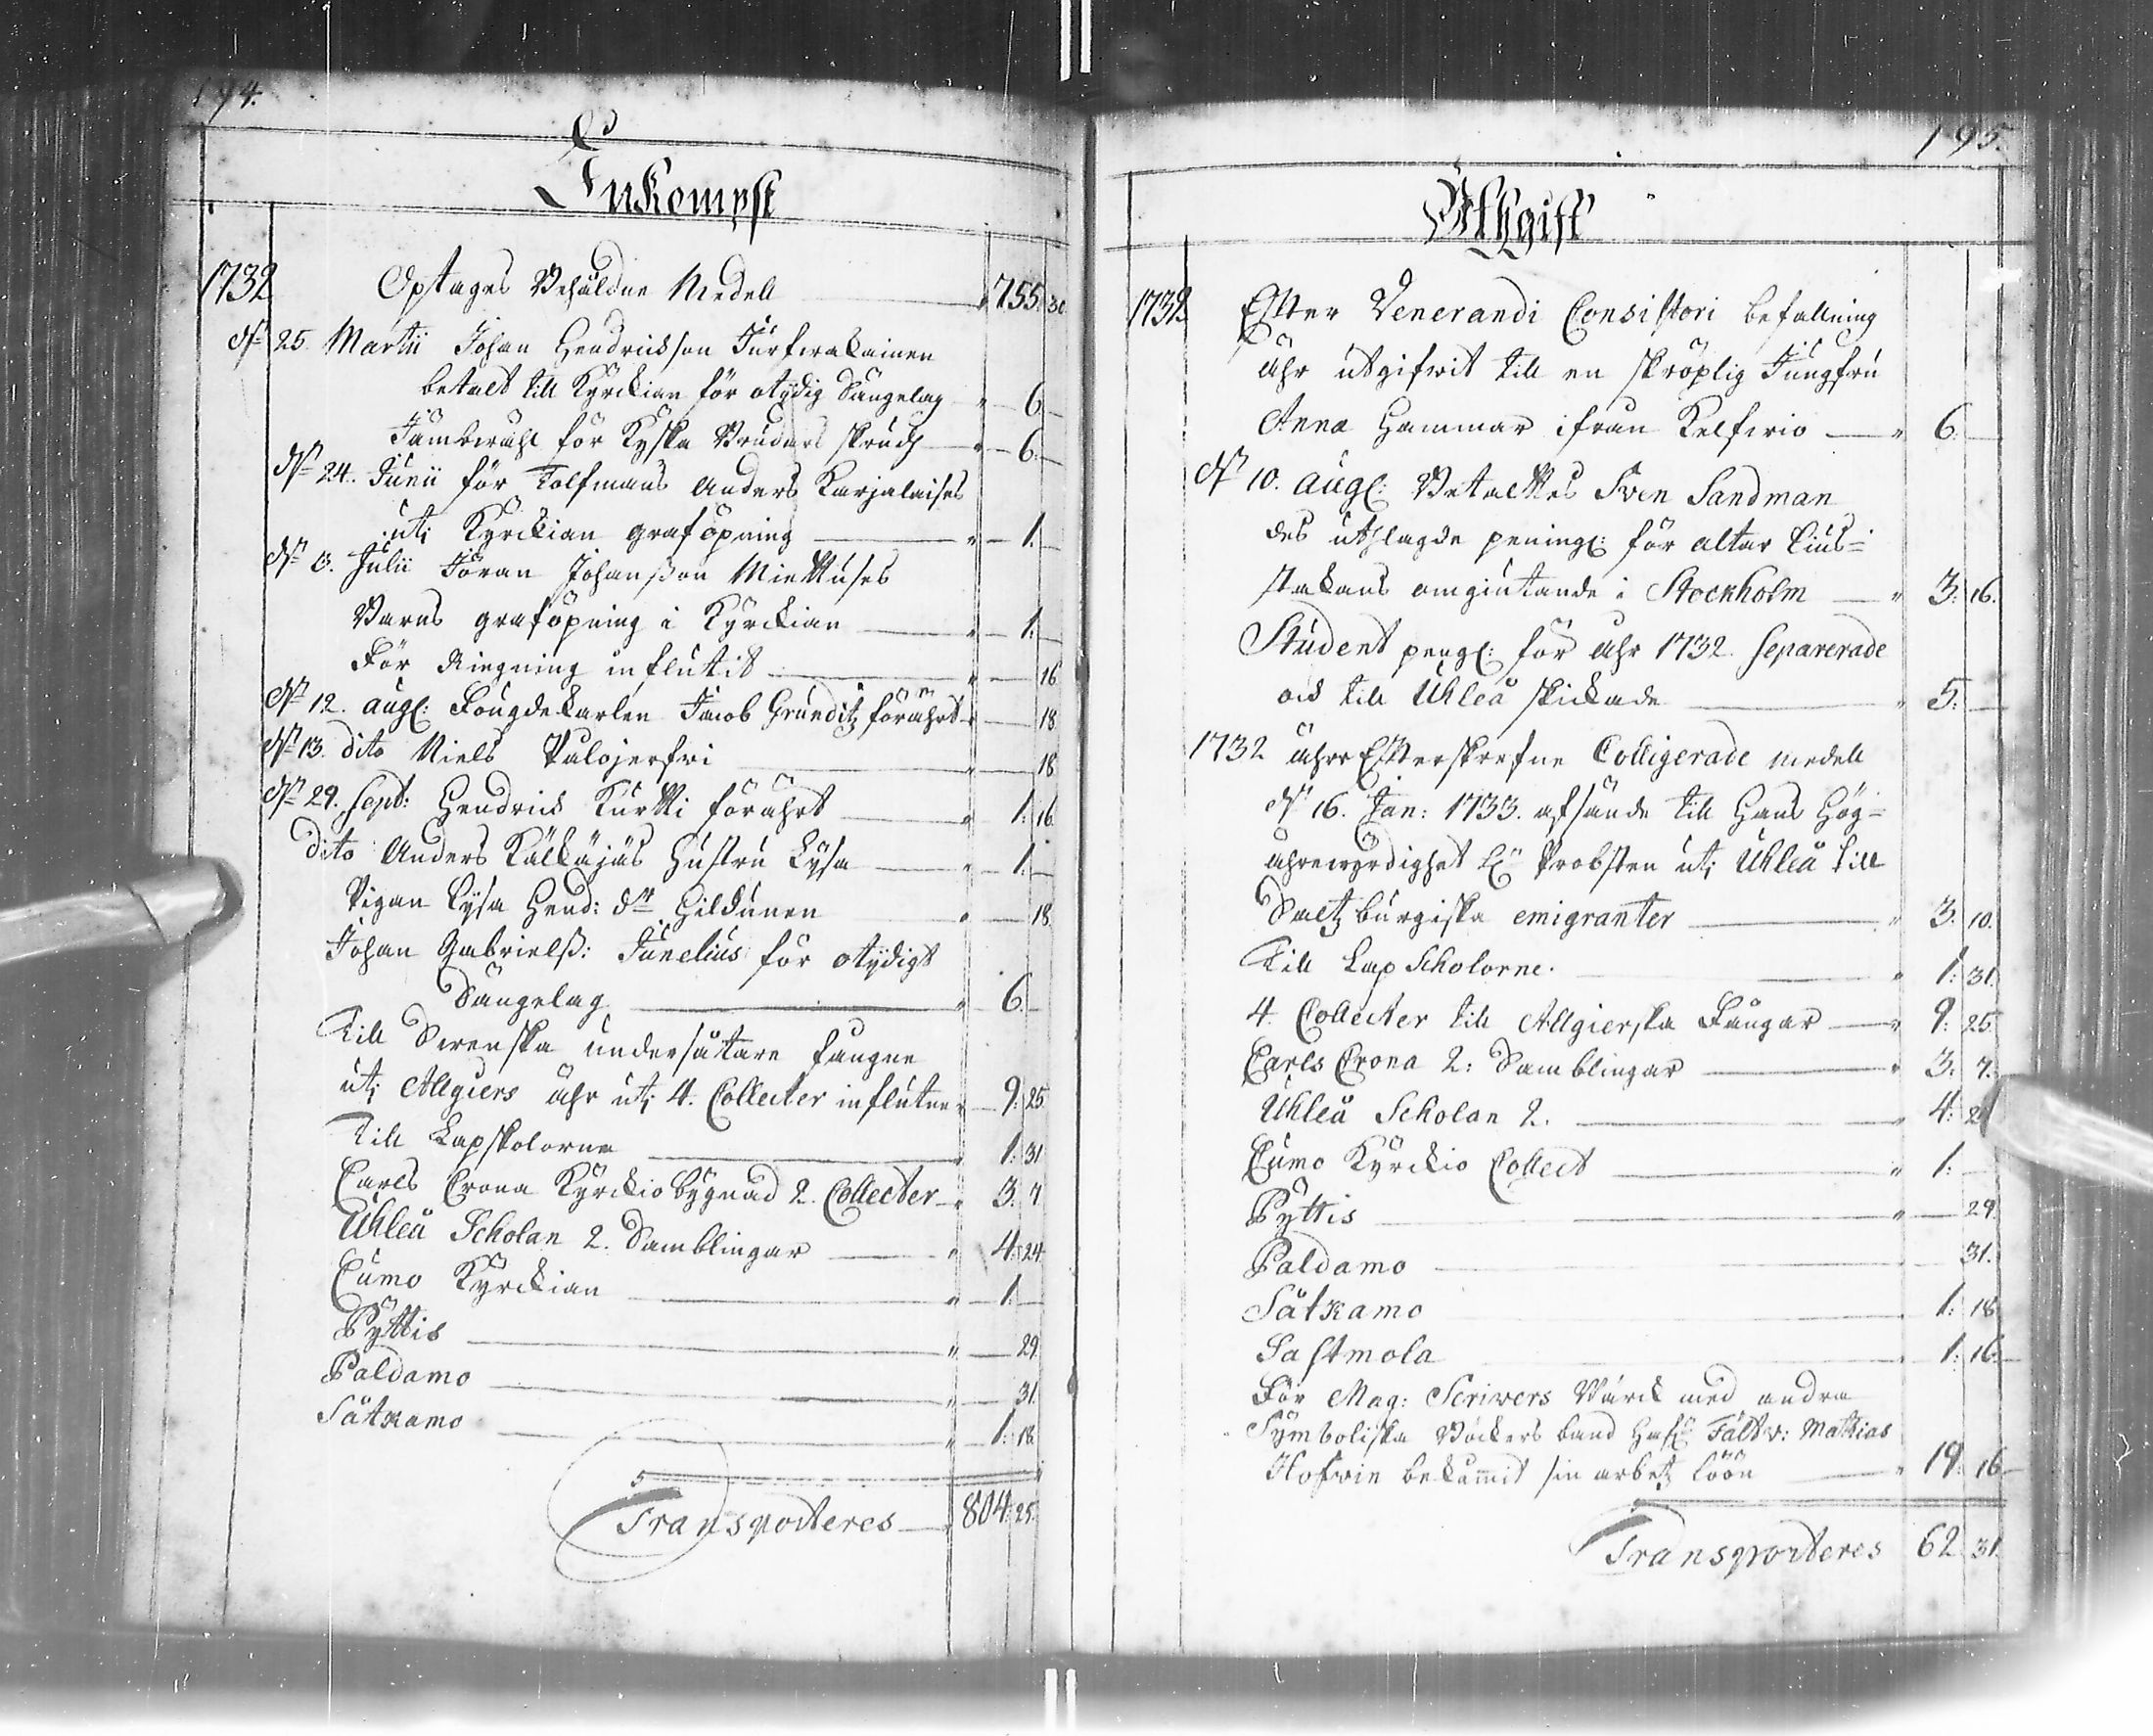 194.
Inkompst
1732 Optages Behåldne Medell " 755: 30
dn 25. Martii Johan Hendrickson Turfwakainen
betalt till Kyrckian för otydig Sängelag " 6. —
Jämbwähl för Kyska Bruders skrudh " 6. —
dn 24. Junii för Tolfmans Anders Karjalaises
uti Kyrckian graföpning " 1. —
dn 3. Julii Jöran Johanßon Miettuses
Barns graföpning i Kyrckian " 1. —
För Ringning influtit " — 16
dn 12. Augt: Fougdekarlen Jacob Grunditz förährt " — 18
dn 13. dito Niels Palojerfwi " — 18
dn 29. Sept: Hendrick Kurtti förährt " 1. 16.
dito Anders Källäjäs Hustru Lysa " 1. —
Pigan Lysa Hend: dr Hildunen " — 18.
Johan Gabrielß: Junelius för otydigt
Sängelag " 6. —
Till Swenska undersåtare fångne
uti Allgiers ähr uti 4. Collecter influtne " 9: 25
Till Lapskolorne " 1: 31
Carls Crona Kyrckiobygnad 2. Collecter " 3. 7.
Uhleå Scholan 2. Samblingar " 4: 24
Cumo Kyrckian " 1. —
Pyttis " — 29
Paldamo " — 31.
Såtkamo " 1: 18.
Transporteres 804: 25.
195.
Uthgift
1732 Effter Venerandi Consistori befallning
ähr utgifwit till en skröplig Jungfru
Anna Hammar ifrån Kelfwio " 6. —
dn 10. Augt: Betalttes Sven Sandman
des uthlagde peningr: för altar lius-
stakans omgiutande i Stockholm " 3: 16.
Student pengr: för åhr 1732. separerade
och till Uhleå skickade " 5. —
1732 åhrs Effterskrefne Colligerade medell
dn 16. Jan: 1733. afsände till Hans Hög-
ährewyrdighet Hr Probsten uti Uhleå till
Saltzburgiska emigranter " 3. 10.
Till Lap Scholorne. " 1: 31.
4. Collecter till Allgierska Fångar " 9: 25
Carls Crona 2: Samblingar " 3. 7.
Uhleå Scholan 2. " 4: 2
Cumo Kyrckio Collect " 1: —
Pyttis " — 29.
Paldamo — 31.
Såtkamo 1: 18
Sastmola 1: 16.
För Mag: Scriwers Wärck med andra
Symboliska Böckers band Fältw: Mathias
Hofwin bekommit sin arbetz löön " 19: 16
Transporteres 62. 31.